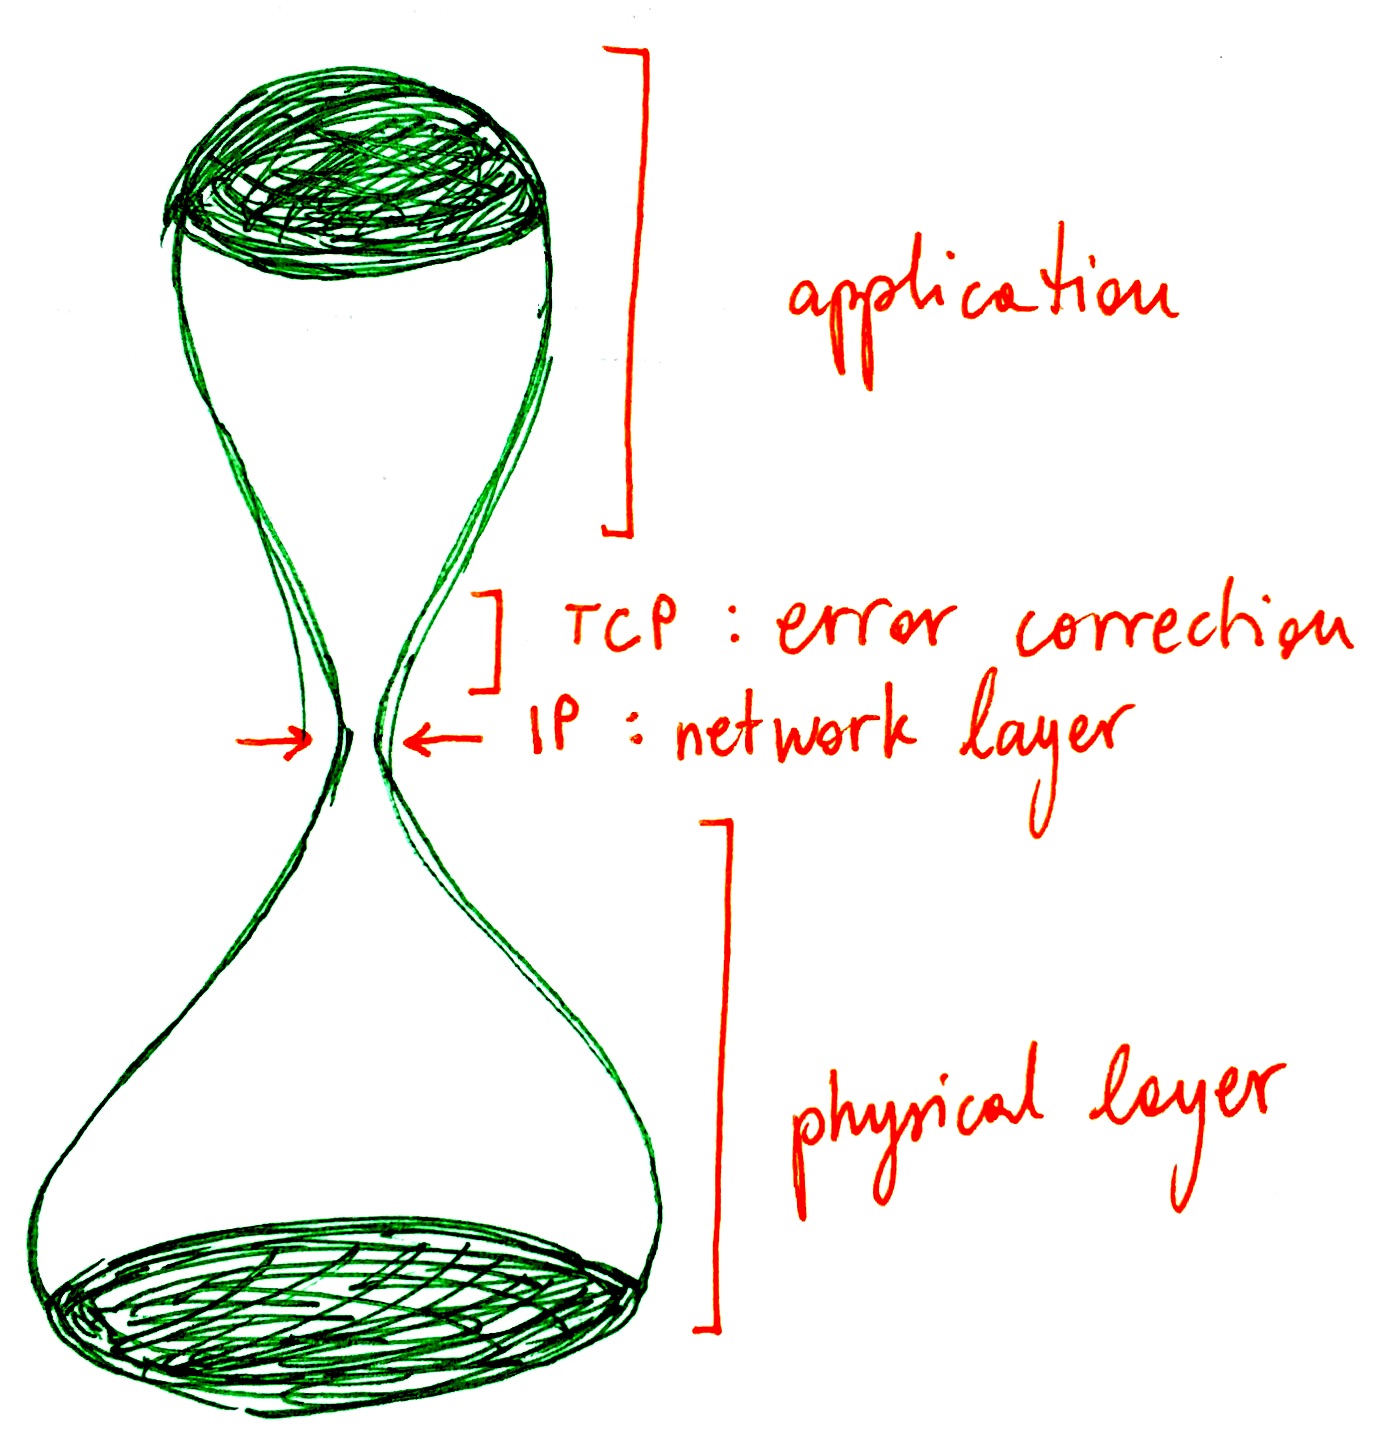 application
TCP : error correction
IP : network layer
physical layer